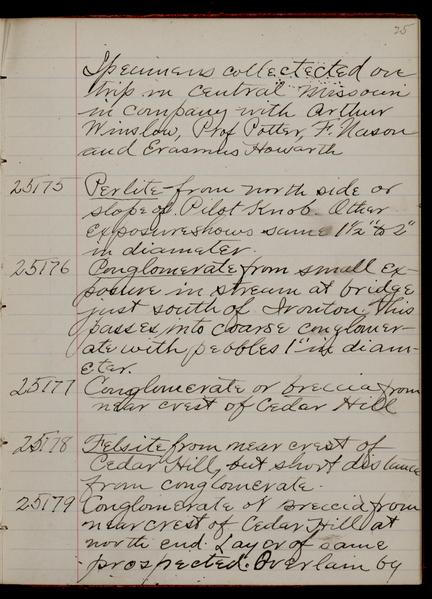 25
Specimens collectected on
trip in central Missouri
in company with Arthur
Winslow, Prof Potter, F. Nason
and Erasmus Howarth
25175 Perlite - from north side or
slope of Pilot Knob. Other
exposure shows same 1½" to 2"
in diameter.
25176 Conglomerate from small ex-
posure in stream at bridge
just south of Ironton, this
passes into coarse conglomer-
ate with pebbles 1" in diam-
eter.
25177 Conglomerate or breccia from
near crest of Cedar Hill
25178 Felsite from near crest of
Cedar Hill, but short distance
from conglomerate.
25179 Conglomerate or breccia from
near crest of Cedar Hill at
north end. Layer of same
prospected. Overlain by